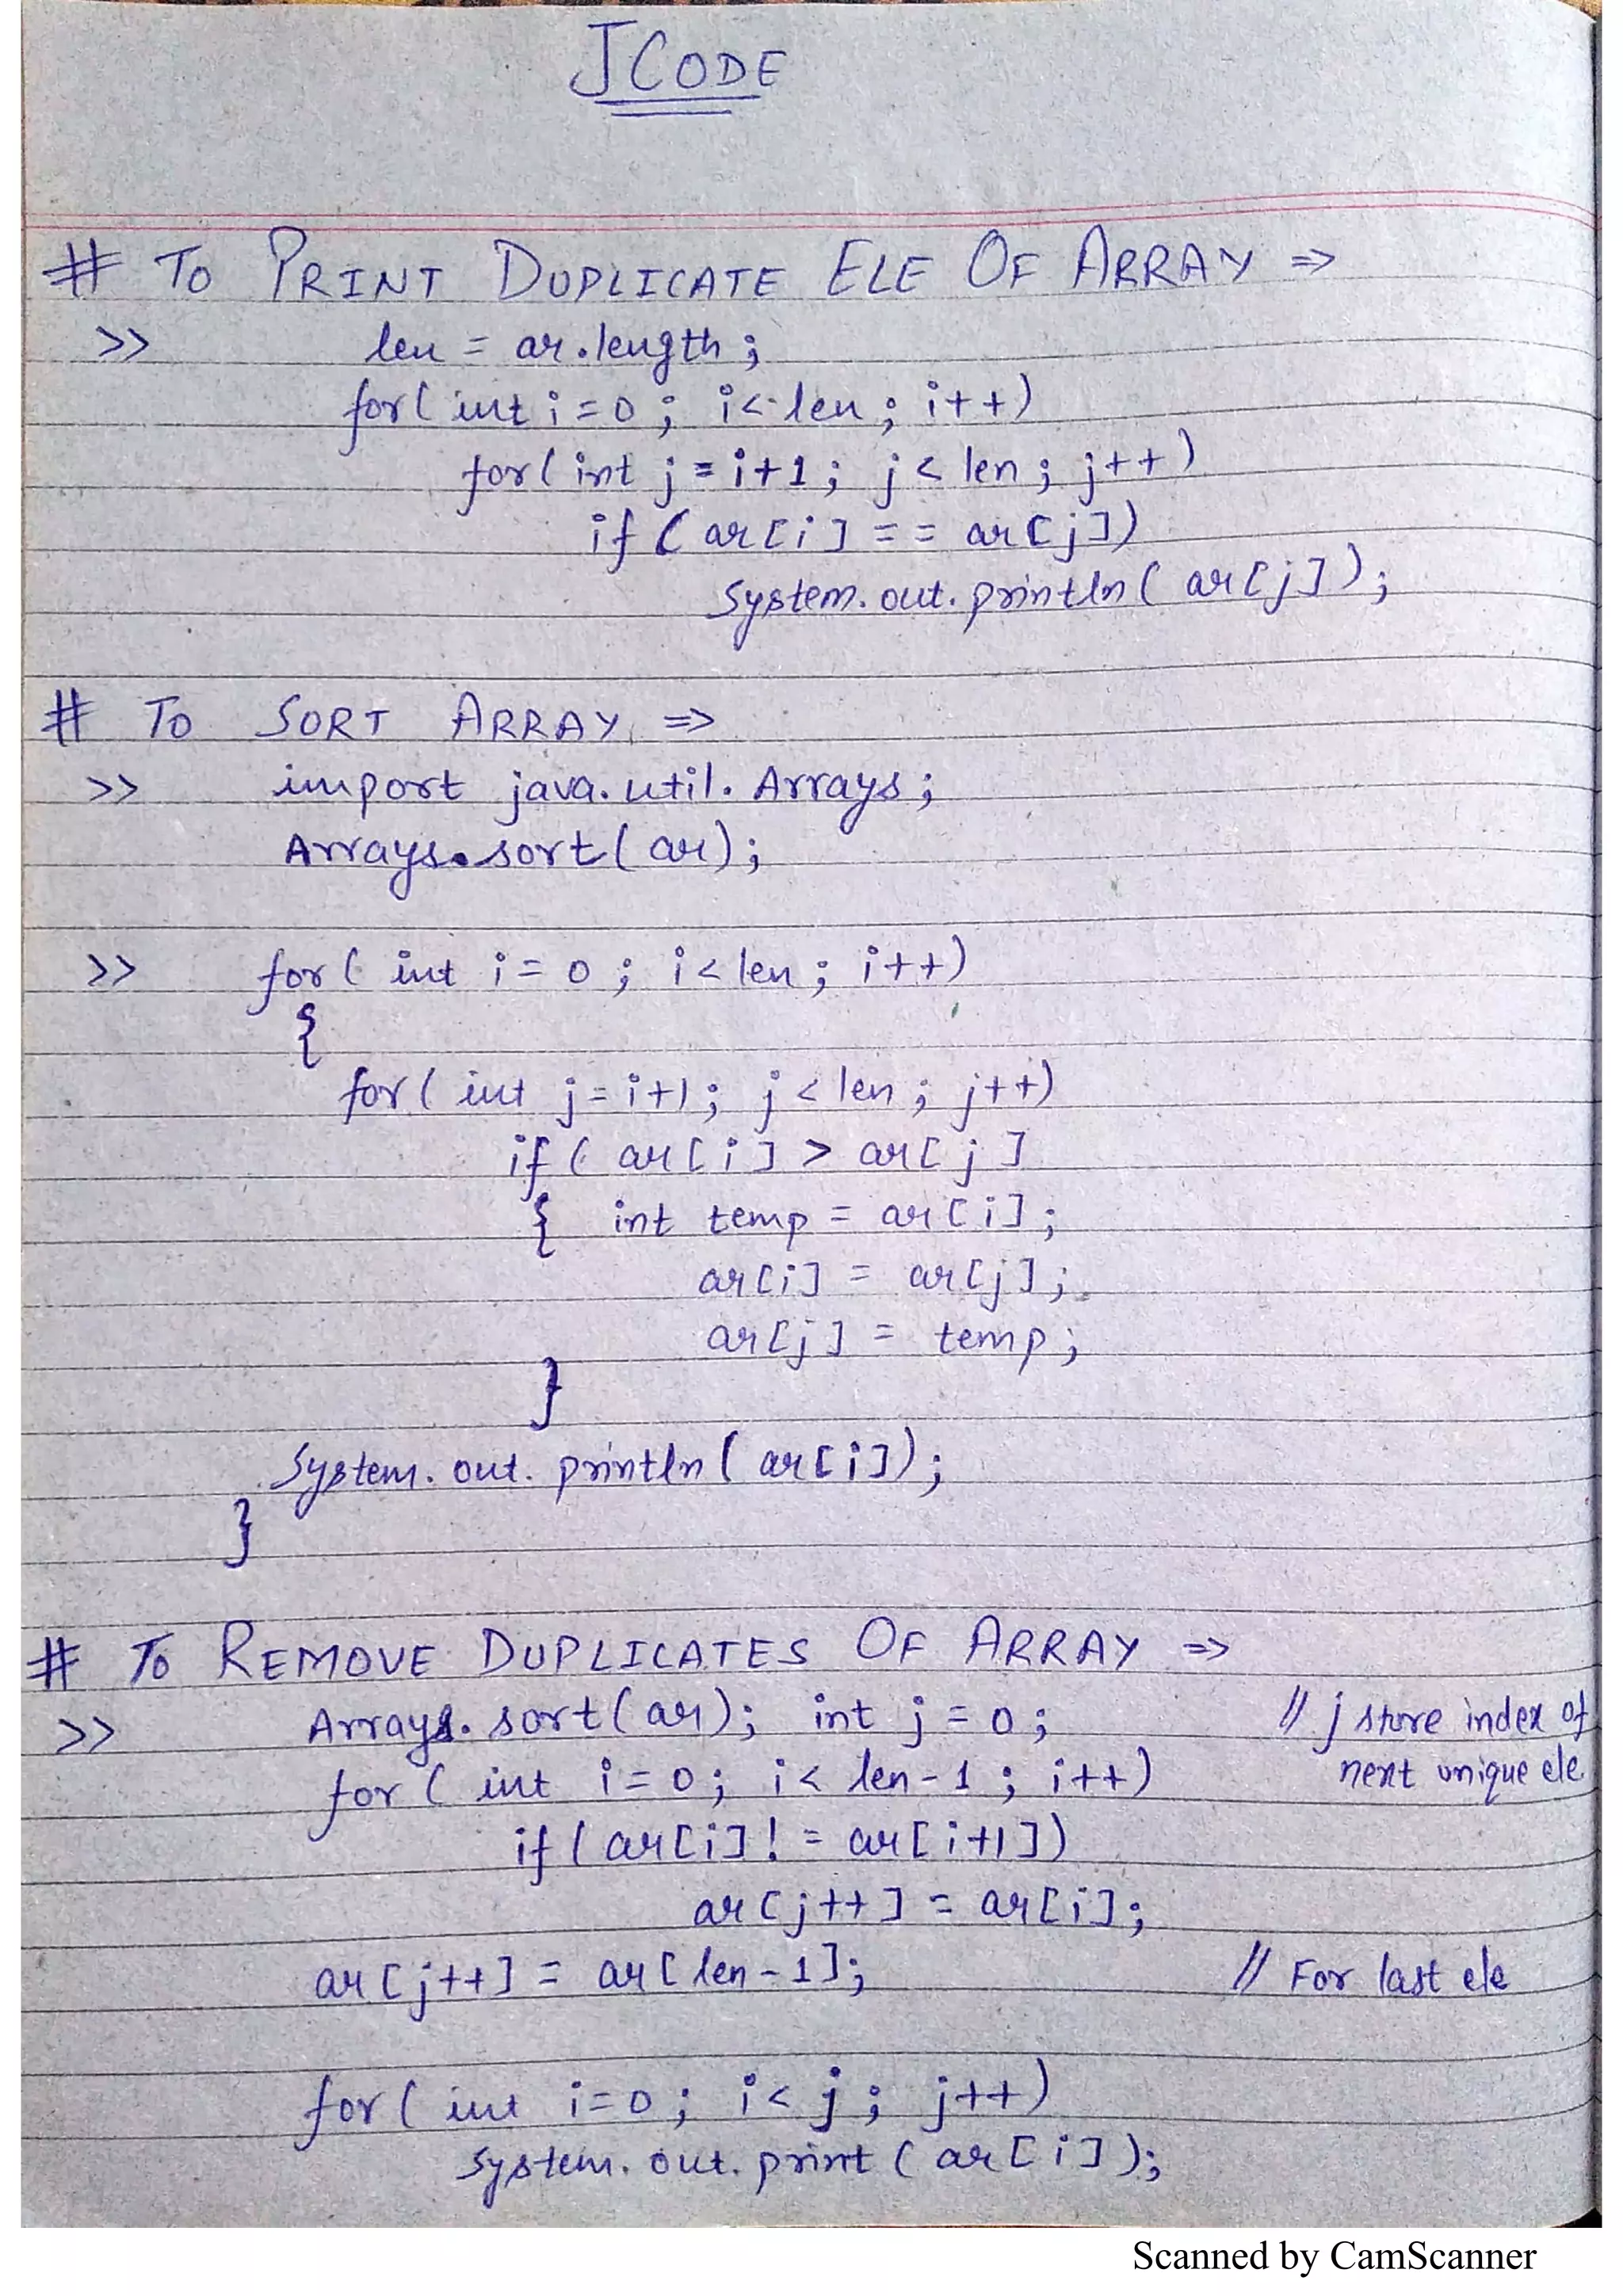 JCODE
# TO PRINT DUPLICATE ELE OF ARRAY =>
>> len = ar.length;
for(int i=0; i<len; i++)
for(int j=i+1; j<len; j++)
if(ar[i] == ar[j])
System.out.println(ar[j]);
# TO SORT ARRAY =>
>> import java.util.Arrays;
Arrays.sort(ar);
>> for(int i=0; i<len; i++)
{
for(int j=i+1; j<len; j++)
if(ar[i] > ar[j]
{ int temp = ar[i];
ar[i] = ar[j];
ar[j] = temp;
}
System.out.println(ar[i]);
}
# TO REMOVE DUPLICATES OF ARRAY =>
>> Arrays.sort(ar); int j=0; // j store index of
for(int i=0; i<len-1; i++) next unique ele.
if(ar[i]!=ar[i+1])
ar[j++] = ar[i];
ar[j++] = ar[len-1]; // For last ele
for(int i=0; i<j; j++)
System.out.print(ar[i]);
Scanned by CamScanner